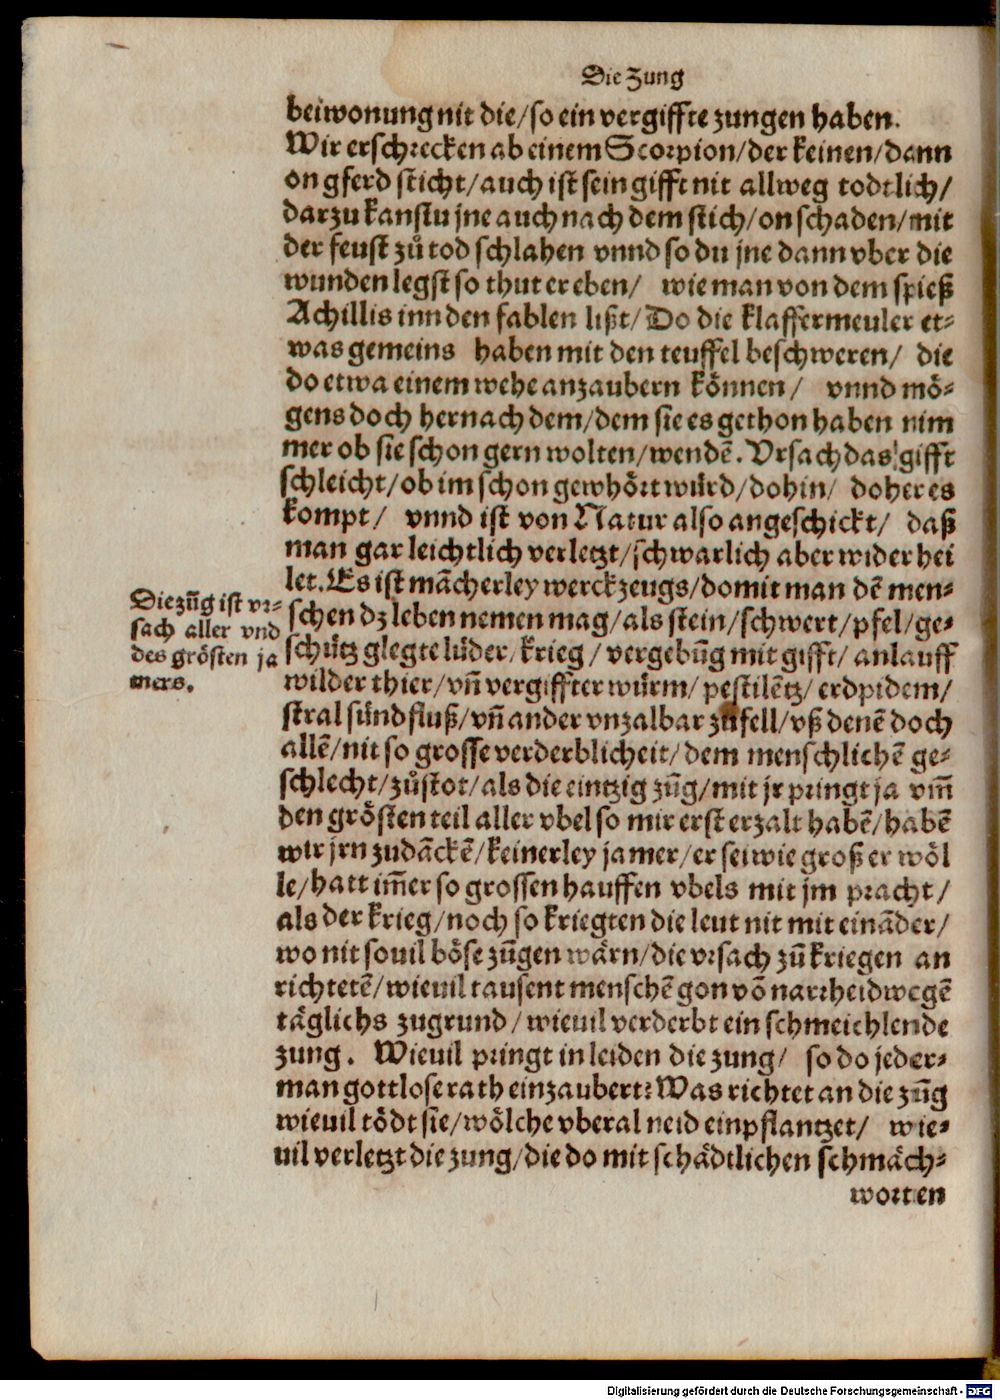 Die Zung
beiwonung nit die/so ein vergiffte zungen haben.
Wir erschrecken ab einem Scorpion/der keinen/dann
on gferd sticht/auch ist sein gifft nit allweg todtlich/
darzu kanstu jne auch nach dem stich/on schaden/mit
der feust zů tod schlahen vnnd so du jne dann vber die
wunden legst so thut er eben/ wie man von dem spieß
Achillis inn den fablen lißt/Do die klaffermeuler et-
was gemeins haben mit den teuffel beschweren/ die
do etwa einem wehe anzaubern können/ vnnd mö-
gens doch hernach dem/dem sie es gethon haben nim
mer ob sie schon gern wolten/wendē. Vrsach das gifft
schleicht/ob im schon gewhört würd/dohin/ doher es
kompt/ vnnd ist von Natur also angeschickt/ daß
man gar leichtlich verletzt/schwarlich aber wider hei
let. Es ist mācherley werckzeugs/domit man dē men-
schen dz leben nemen mag/als stein/schwert/pfel/ge-
schütz glegte lüder/krieg/vergebūg mit gifft/anlauff
wilder thier/vn̄ vergiffter würm/pestilētz/erdpidem/
stral sündfluß/vn̄ ander vnzalbar zůfell/vß denē doch
allē/nit so grosse verderblicheit/dem menschlichē ge-
schlecht/zůstot/als die eintzig zūg/mit jr pringt ja vm̄
den grösten teil aller vbel so mir erst erzalt habē/habē
wir jrn zudāckē/keinerley jamer/er sei wie groß er wöl
le/hatt im̄er so grossen hauffen vbels mit jm pracht/
als der krieg/noch so kriegten die leut nit mit eināder/
wo nit souil böse zūgen wärn/die vrsach zů kriegen an
richtetē/wieuil tausent menschē gon vō narrheid wegē
täglichs zugrund/wieuil verderbt ein schmeichlende
zung. Wieuil pringt in leiden die zung/ so do jeder-
man gottlose rath einzaubert? Was richtet an die zūg
wieuil tödt sie/wölche vberal neid einpflantzet/ wie-
uil verletzt die zung/die do mit schädtlichen schmäch-
worten
Die zūg ist vr-
sach aller vnd
des grösten ja
mers.
Digitalisierung gefördert durch die Deutsche Forschungsgemeinschaft - DFG